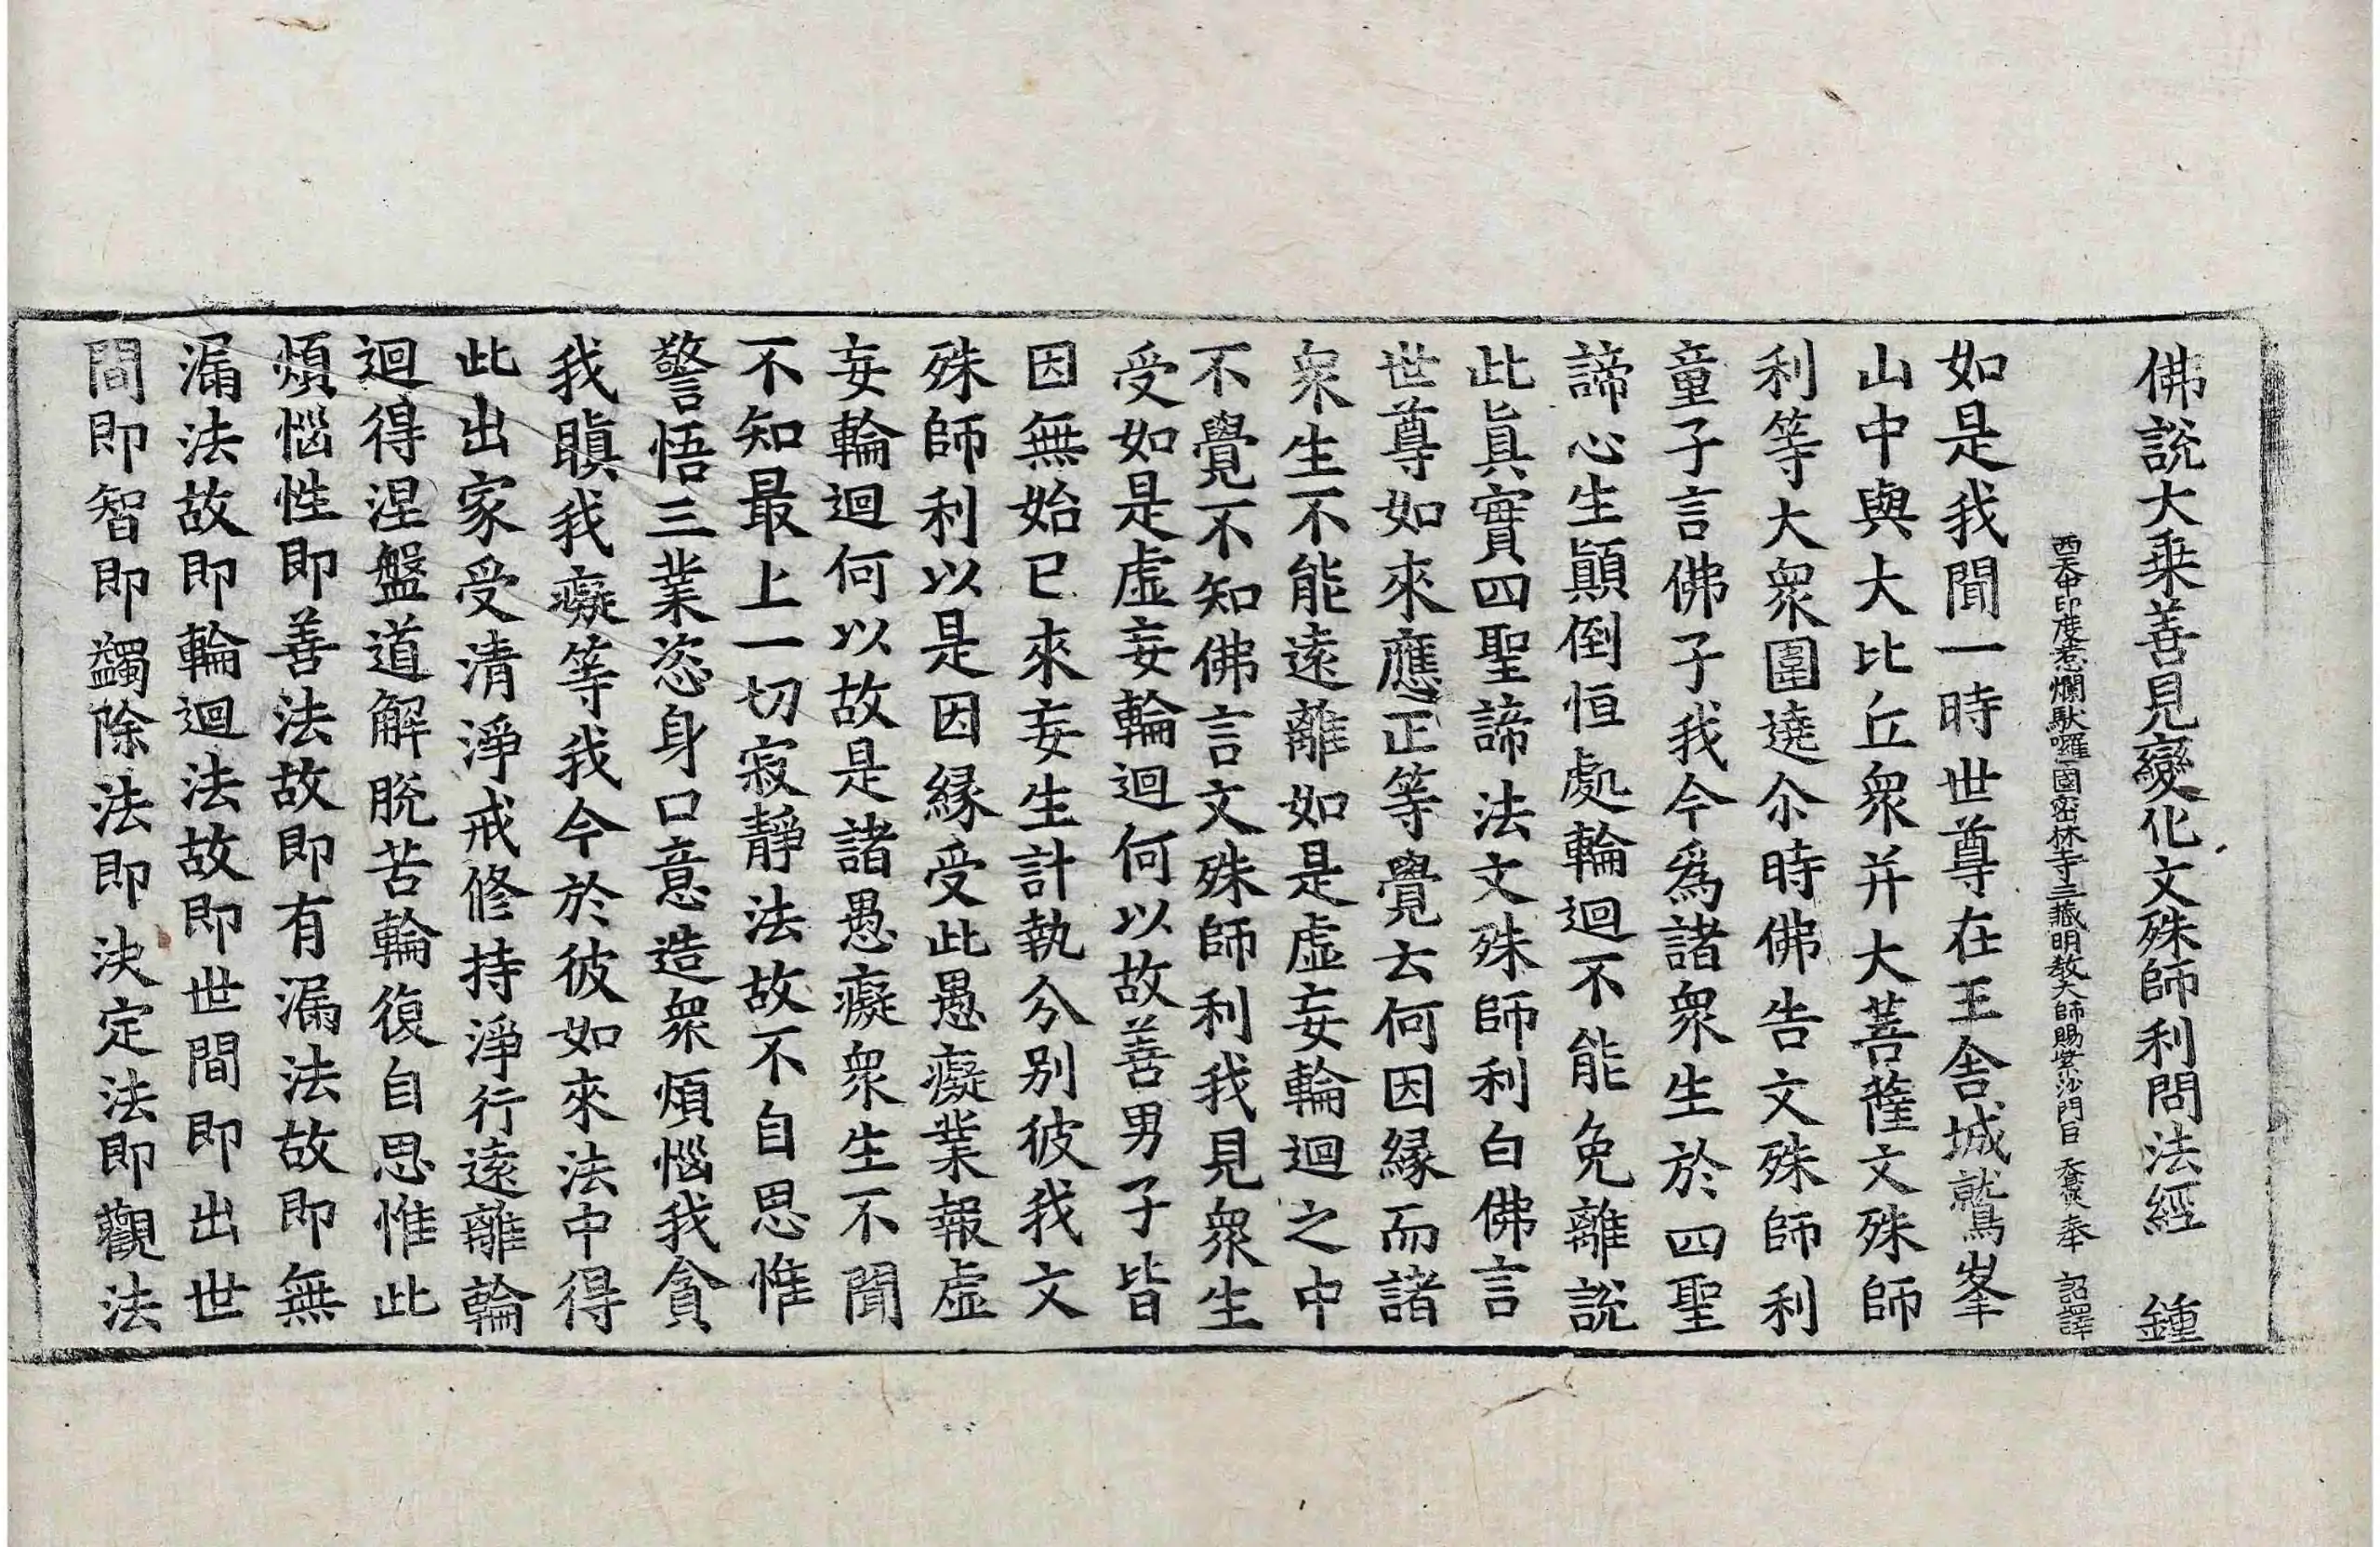 佛說大乗善見變化文殊師利問法經　鍾
西天中印度惹爛馱囉國密林寺三藏明教大師賜紫沙門臣天息災奉　詔譯
如是我聞一時世尊在王舍城鷲峯
山中與大比丘衆并大菩薩文殊師
利等大衆圍遶尒時佛告文殊師利
童子言佛子我今爲諸衆生於四聖
諦心生顚倒恒處輪迴不能免離說
此眞實四聖諦法文殊師利白佛言
世尊如來應正等覺云何因縁而諸
衆生不能遠離如是虛妄輪迴之中
不覺不知佛言文殊師利我見衆生
受如是虛妄輪迴何以故善男子皆
因無始已來妄生計執分別彼我文
殊師利以是因縁受此愚癡業報虛
妄輪迴何以故是諸愚癡衆生不聞
不知最上一切寂靜法故不自思惟
警悟三業恣身口意造衆煩惱我貪
我瞋我癡等我今於彼如來法中得
此出家受清淨戒修持淨行遠離輪
迴得涅盤道解脫苦輪復自思惟此
煩惱性即善法故即有漏法故即無
漏法故即輪迴法故即世間即出世
間即智即蠲除法即決定法即觀法